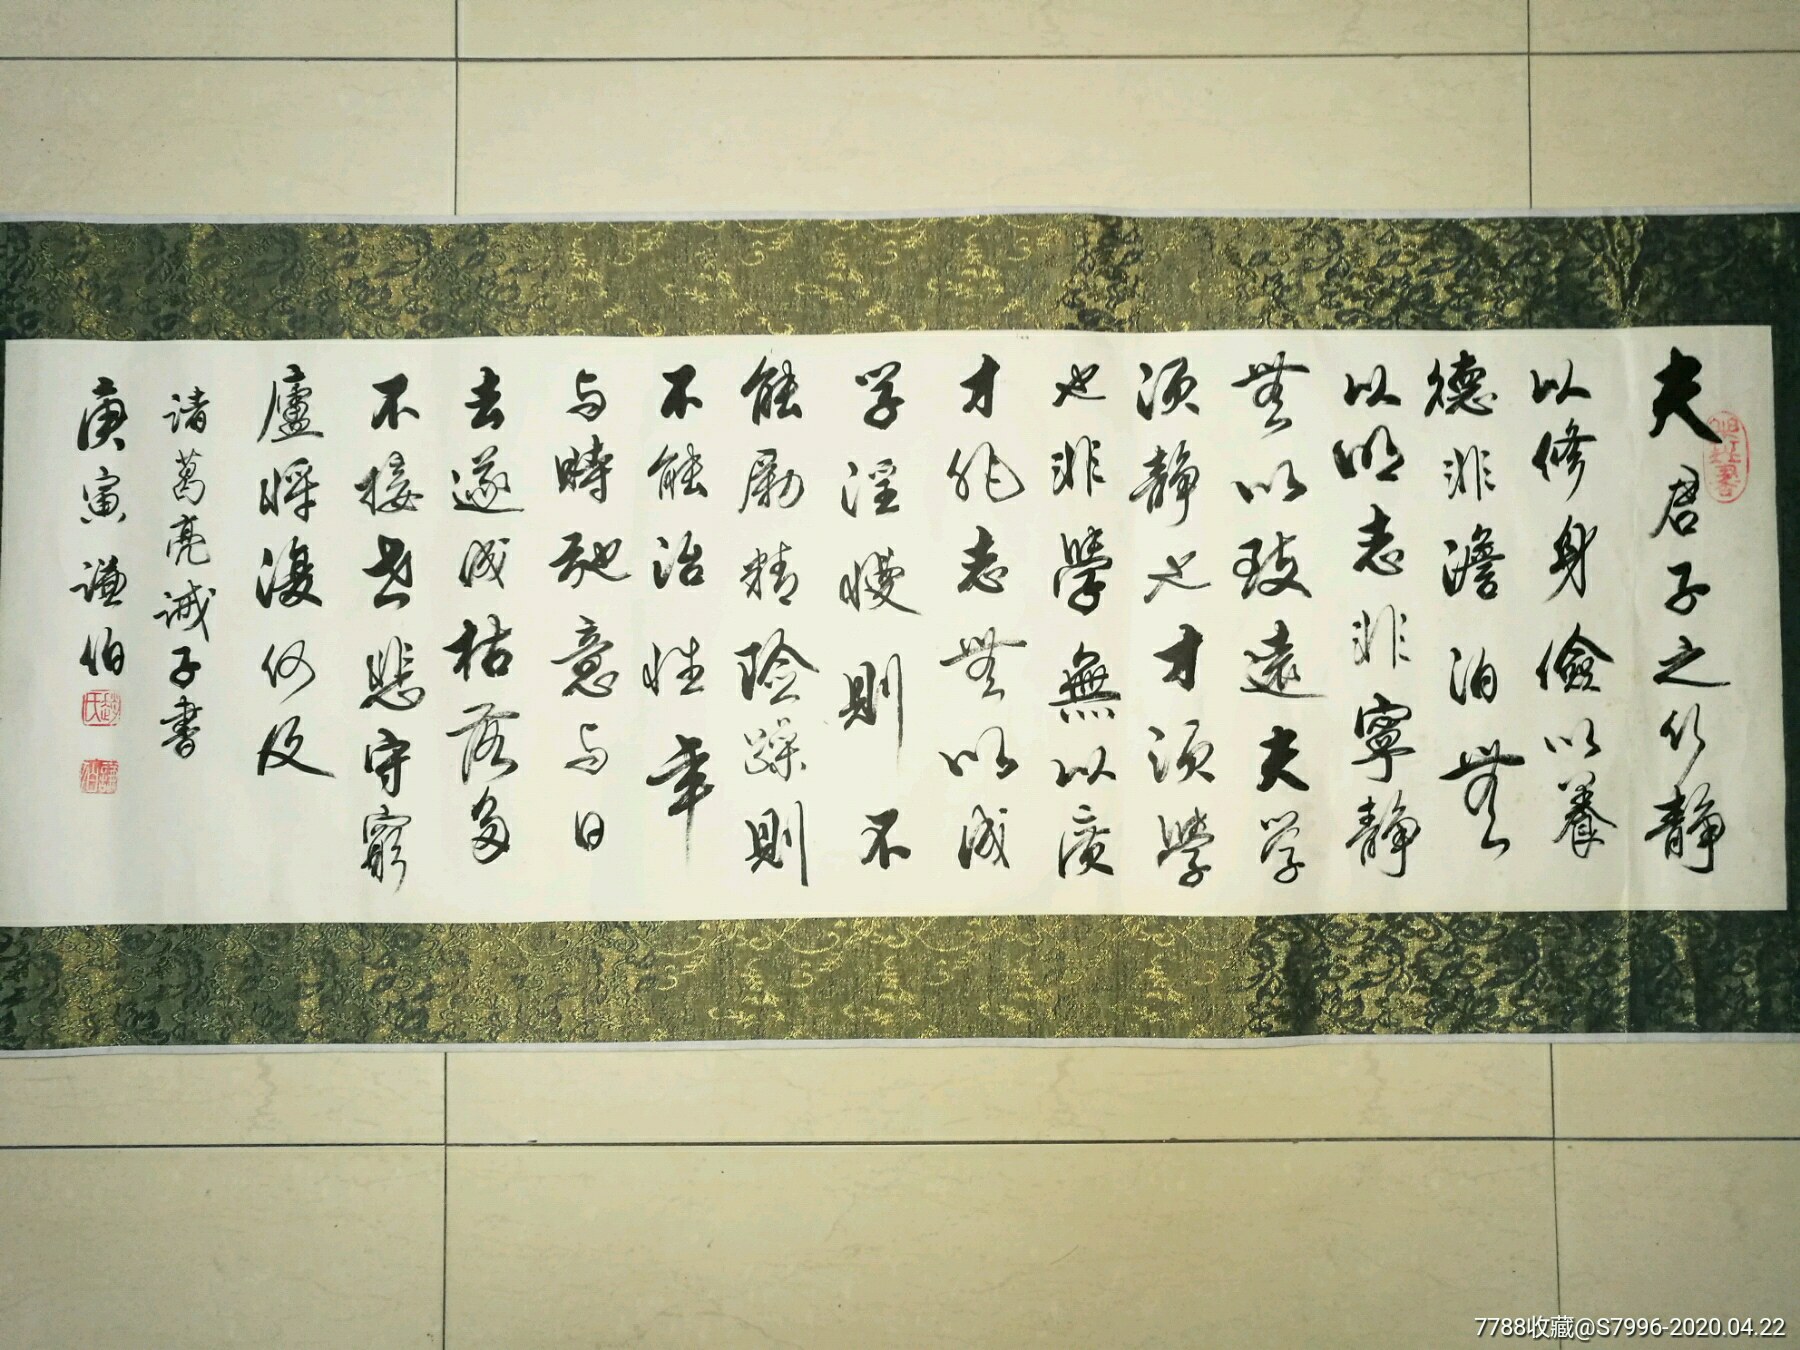 夫君子之行静
以修身儉以養
德非澹泊無
以明志非寧静
無以致遠夫学
須静也才須學
也非學無以廣
才非志無以成
学淫慢則不
能勵精險躁則
不能治性年
与時馳意与日
去遂成枯落多
不接世悲守窮
廬将復何及
諸葛亮诫子書
庚寅谦伯
7788收藏@S7996-2020.04.22